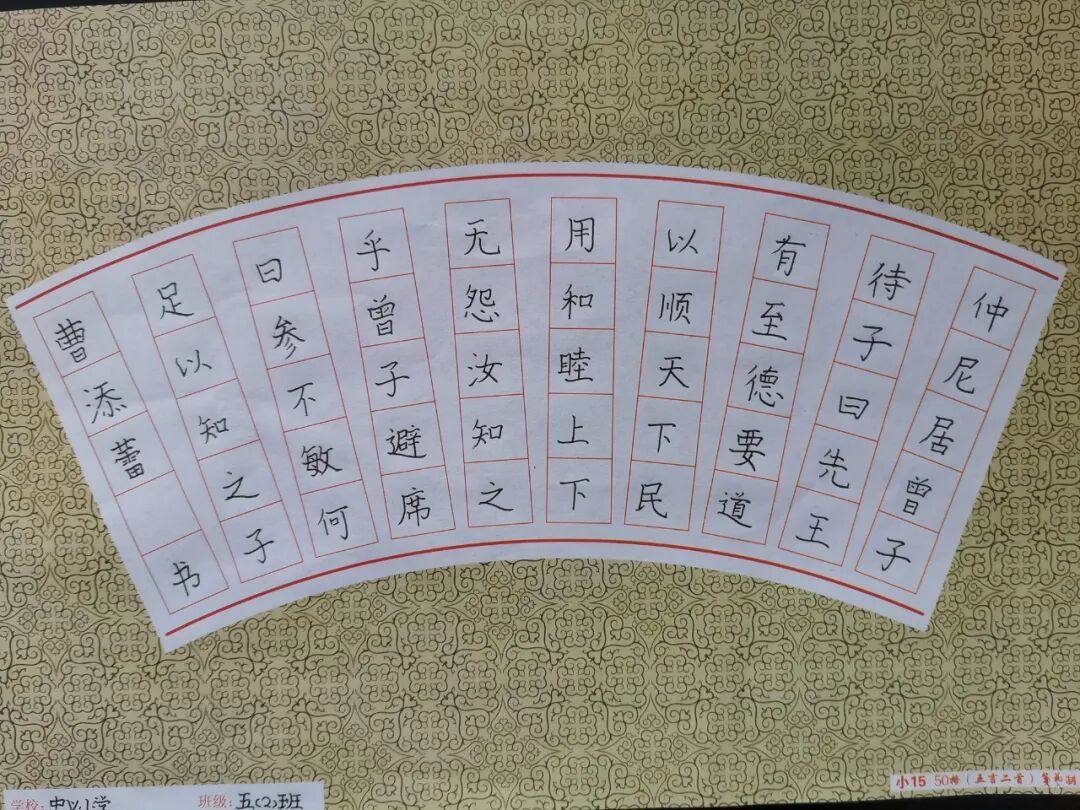 仲尼居曾子
待子曰先王
有至德要道
以顺天下民
用和睦上下
无怨汝知之
乎曾子避席
曰参不敏何
足以知之子
曹添蕾 书
学校: 中心小学
班级: 五(2)班
小15 50格(五言二首)